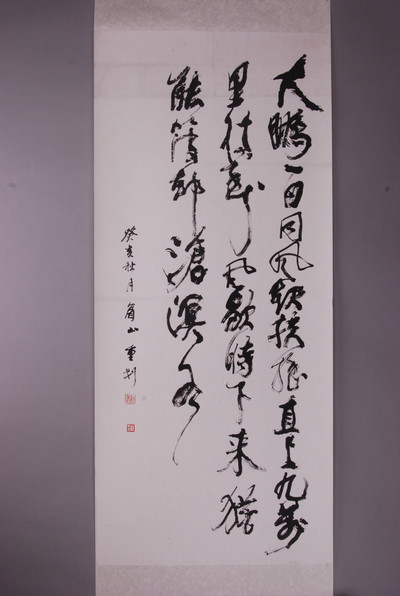 大鵬一日同風起扶搖直上九萬
里假令風歇時下来猶
能簸却滄溟水
癸亥秋月眉山